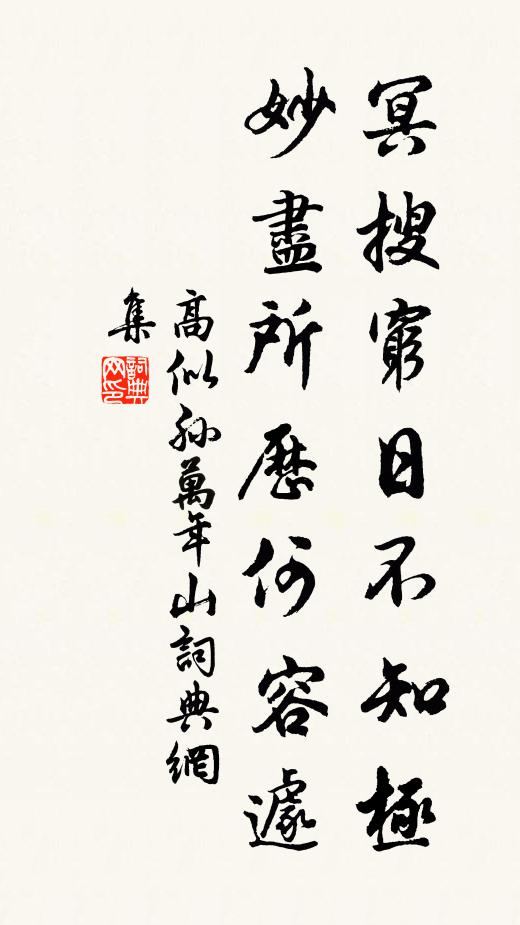 冥搜窮日不知極
妙盡所歷何容遽
高似孫萬年山詞典網
集
詞典网印